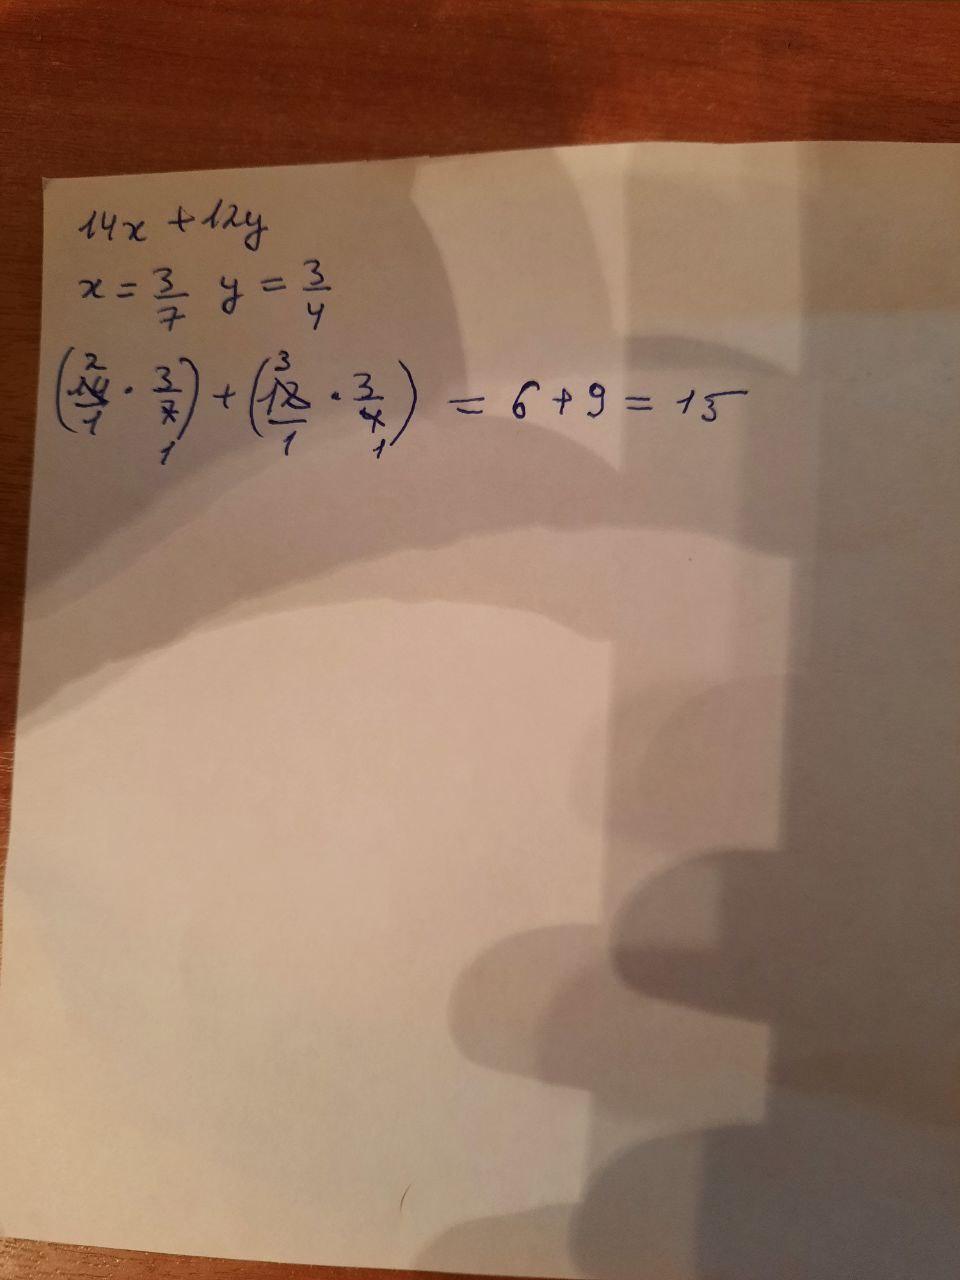 14x + 12y
x = 3/7 y = 3/4
(14/1 · 3/7) + (12/1 · 3/4) = 6 + 9 = 15